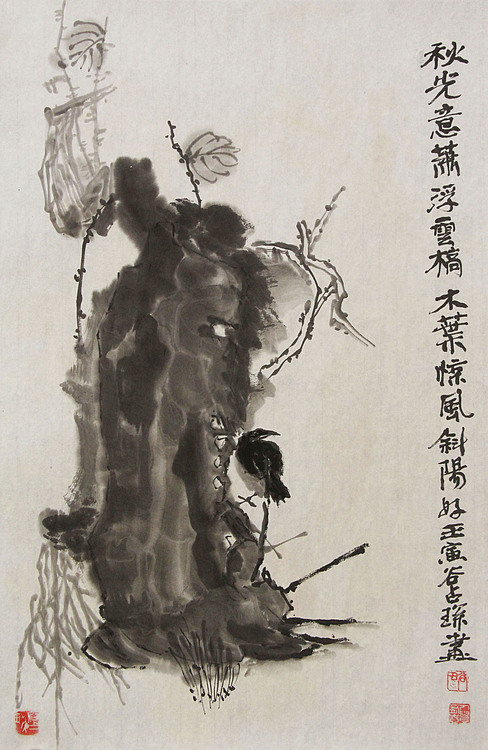 秋光意蕭浮雲槁木葉惊風斜陽好壬寅谷占畫